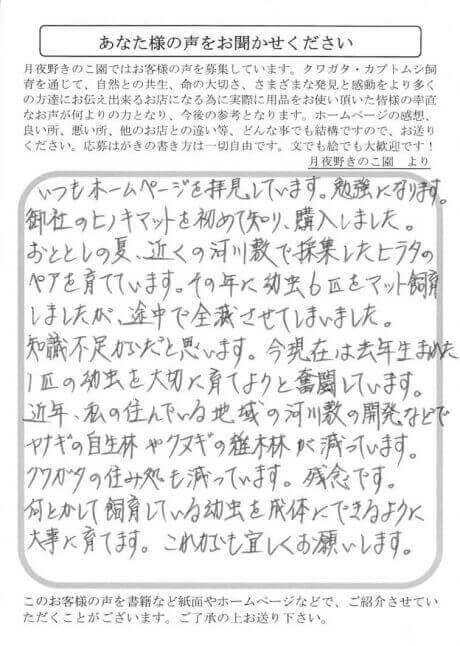 あなた様の声をお聞かせください
月夜野きのこ園ではお客様の声を募集しています。クワガタ・カブトムシ飼
育を通じて、自然との共生、命の大切さ、さまざまな発見と感動をより多く
の方達にお伝え出来るお店になる為に実際に用品をお使い頂いた皆様の率直
なお声が何よりの力となり、今後の参考となります。ホームページの感想、
良い所、悪い所、他のお店との違い等、どんな事でも結構ですので、お送り
ください。応募はがきの書き方は一切自由です。文でも絵でも大歓迎です！
月夜野きのこ園　より
いつもホームページを拝見しています。勉強になります。
御社のヒノキマットを初めて知り、購入しました。
おととしの夏、近くの河川敷で採集したヒラタの
ペアを育てています。その年に幼虫6匹をマット飼育
しましたが、途中で全滅させてしまいました。
知識不足からだと思います。今現在は去年生まれた
1匹の幼虫を大切に育てようと奮闘しています。
近年、私の住んでいる地域の河川敷の開発などで
ヤナギの自生林やクヌギの雑木林が減っています。
クワガタの住み処も減っています。残念です。
何とかして飼育している幼虫を成体にできるように
大事に育てます。これからも宜しくお願いします。
このお客様の声を書籍など紙面やホームページなどで、ご紹介させてい
ただくことがございます。ご了承の上お送り下さい。